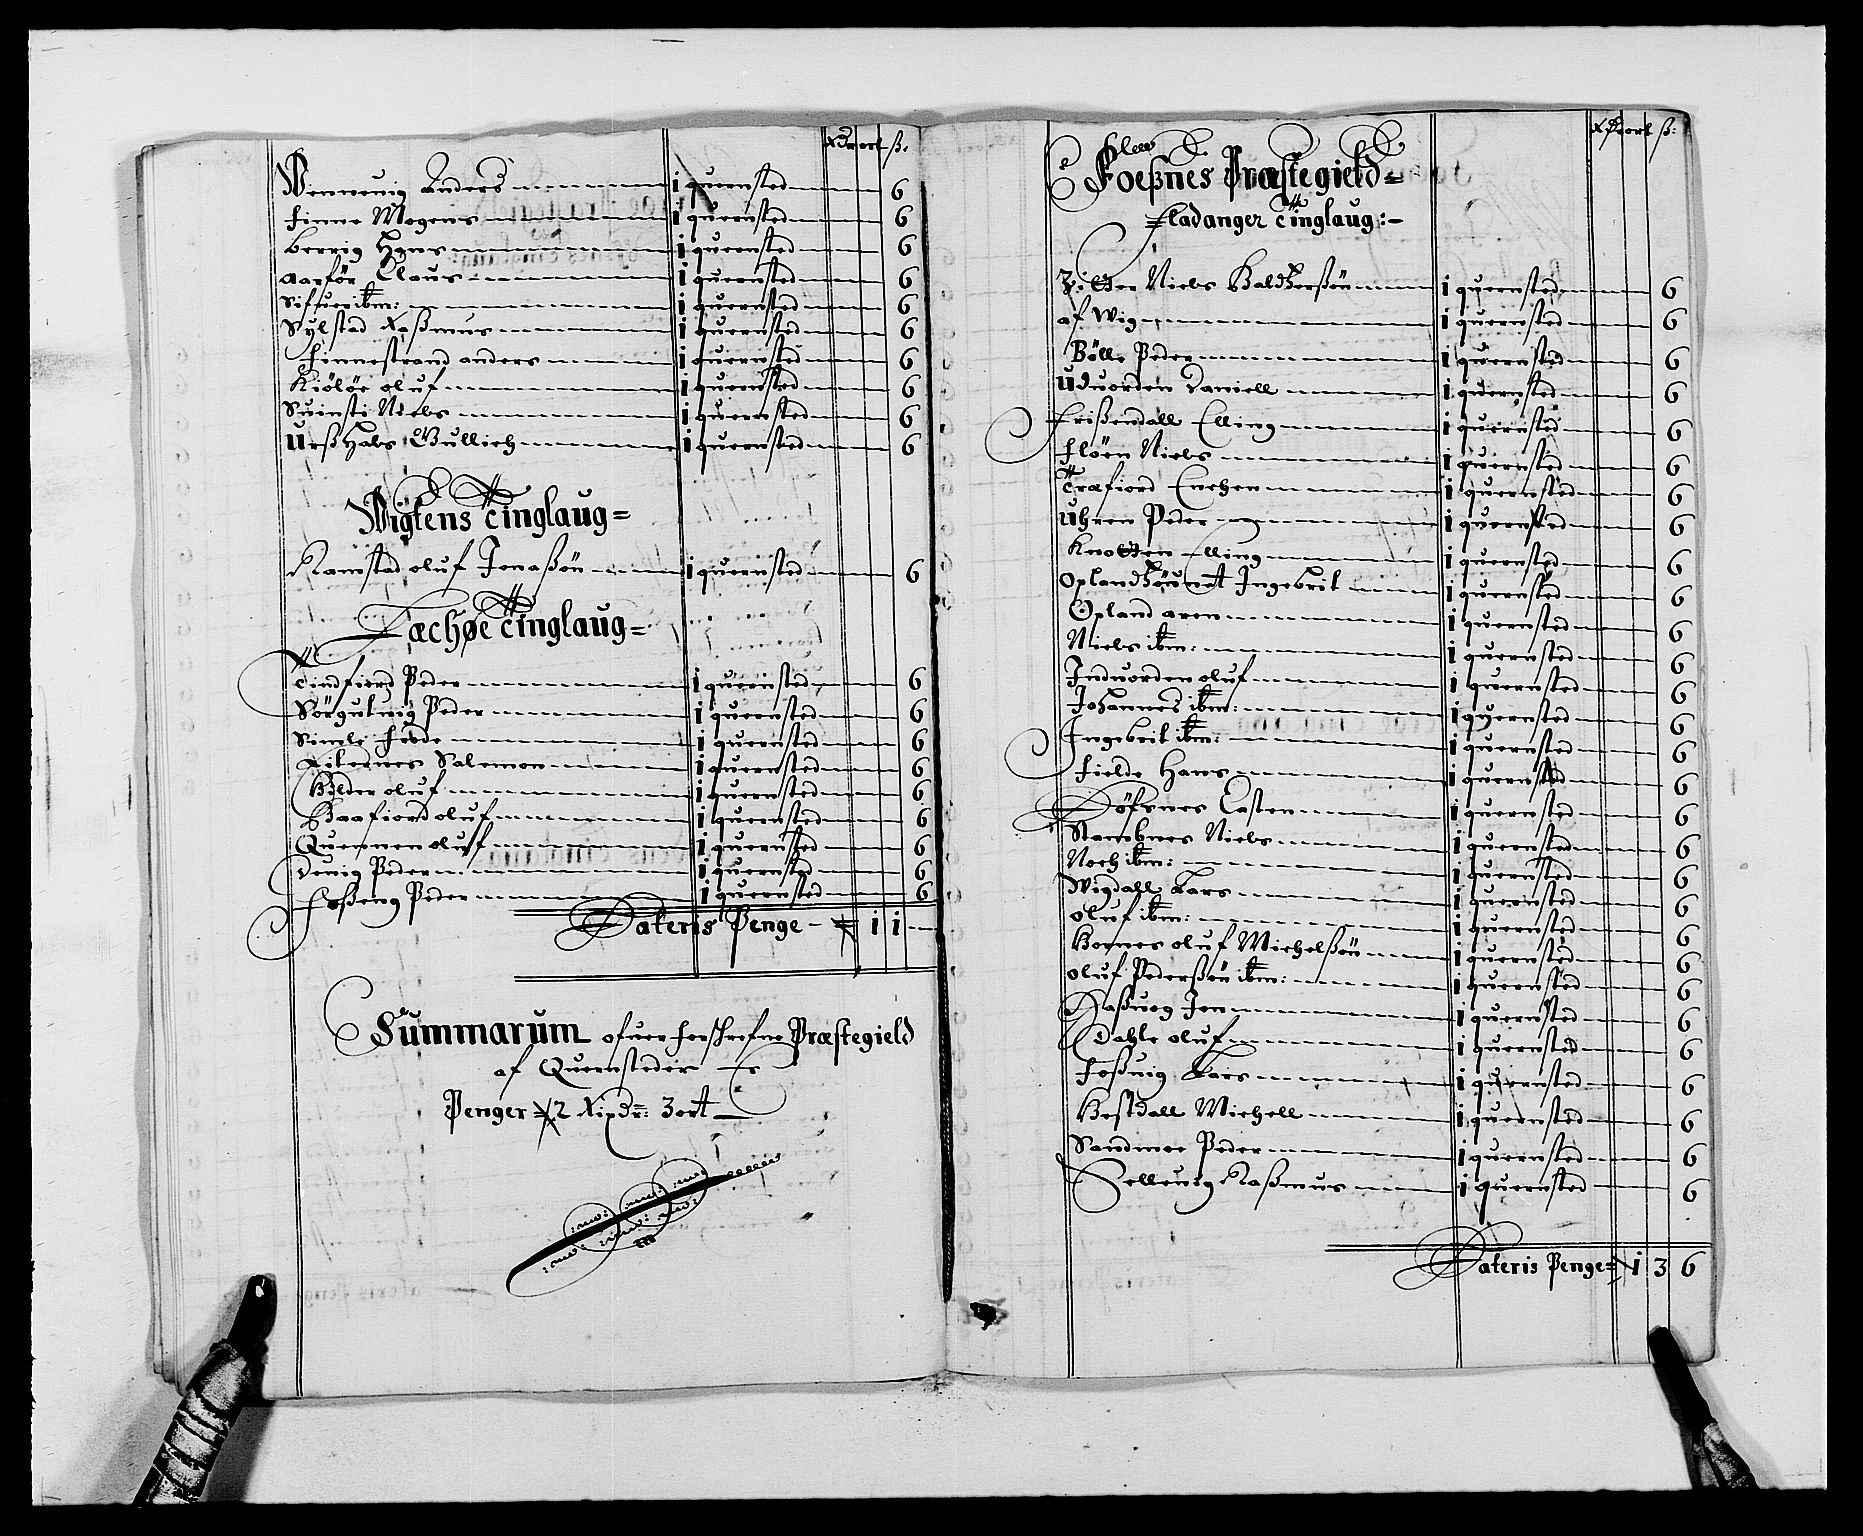 Rdr ort ß:
Wenneuig Anders i quernsted 6
Finne Mogens i quernsted 6
Berrig Hans i quernsted 6
Aarför Claus i quernsted 6
Sifuer ibm: i quernsted 6
Sylstad Raßmus i quernsted 6
Finnestrand anders i quernsted 6
Kiölöe oluf i quernsted 6
Suinsti Niels i quernsted 6
Urßhals Gullich i quernsted 6
Wigtens Tinglaug=
Ramstad oluf Jonaßön i quernsted 6
Læchøe Tinglaug=
Tindfiord Peder i quernsted 6
Sörgutuig Peder i quernsted 6
Simle i quernsted 6
Salemon i quernsted 6
Bilder oluf i quernsted 6
Baafiord oluf i quernsted 6
Quernen oluf i quernsted 6
Deuig Peder i quernsted 6
Foßeng Peder i quernsted 6
Lateris Penge – i i –
Summarum ofuerschrefne Præstegield
af Quernsteder Er
Penger 2 Rixdr: 3 ort
Rdr ort ß:
Foeßnes Præstegield=
Fladanger Tinglaug:–
Zitter Niels Baldtzerßön i quernsted 6
af Wig i quernsted 6
Bölle Peder i quernsted 6
Uduorden Daniell i quernsted 6
Frißendall Elling i quernsted 6
Flöen Niels i quernsted 6
Trafiord Enchen i quernsted 6
Uhren Peder i quernsted 6
Knotten Elling i quernsted 6
Ingebrit i quernsted 6
Opland aren i quernsted 6
Niels ibm: i quernsted 6
Induorden oluf i quernsted 6
Johannes ibm: i quernsted 6
Ingebrit ibm: i quernsted 6
Fielde Hans i quernsted 6
Löfsnes Casten i quernsted 6
Stamnes Niels i quernsted 6
Noch ibm: i quernsted 6
Wigdall Lars i quernsted 6
oluf ibm: i quernsted 6
oluf Michelßön i quernsted 6
oluf Pederßön ibm: i quernsted 6
Laßuog Jon i quernsted 6
Dahle oluf i quernsted 6
Foßuig Lars i quernsted 6
Bestdall Michell i quernsted 6
Sandmoe Peder i quernsted 6
Selleuig Raßmus i quernsted 6
Lateris Penge= i 3 6